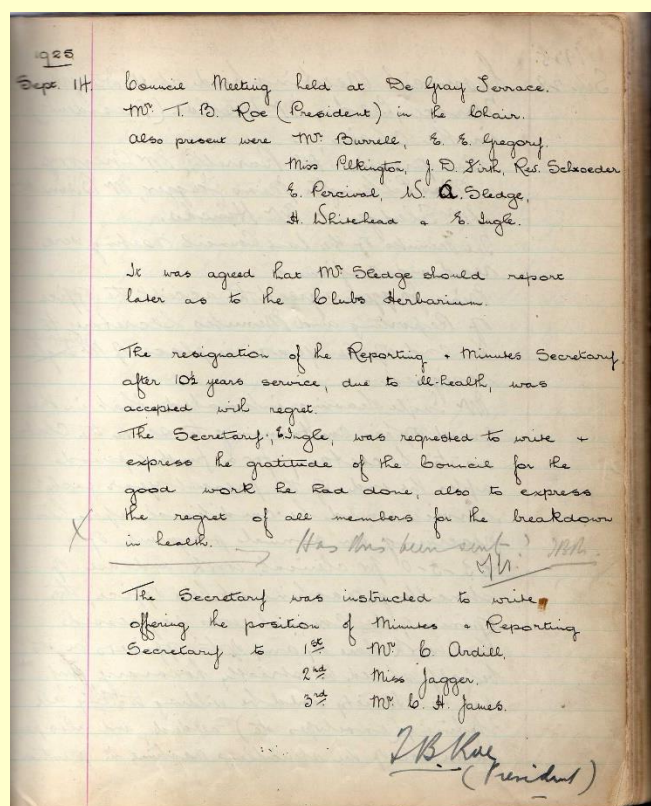 1925
Sept. 14. Council Meeting held at De Gray Terrace.
Mr. T. B. Roe (President) in the Chair.
Also present were Mr. Burrell, E. E. Gregory.
Miss Pilkington, J. D. Firth, Rev. Schroeder
E. Percival, W. A. Sledge,
H. Whitehead & E. Ingle.
It was agreed that Mr. Sledge should report
later as to the Clubs Herbarium.
The resignation of the Reporting & Minutes Secretary.
after 10½ years service, due to ill-health, was
accepted with regret.
The Secretary, E. Ingle, was requested to write &
express the gratitude of the Council for the
good work he had done, also to express
the regret of all members for the breakdown
X in health. Has this been sent?
The Secretary was instructed to write,
offering the position of Minutes & Reporting
Secretary to 1st Mr C Ardill.
2nd Miss Jagger.
3rd Mr. C. H. James.
T B Roe
(President)